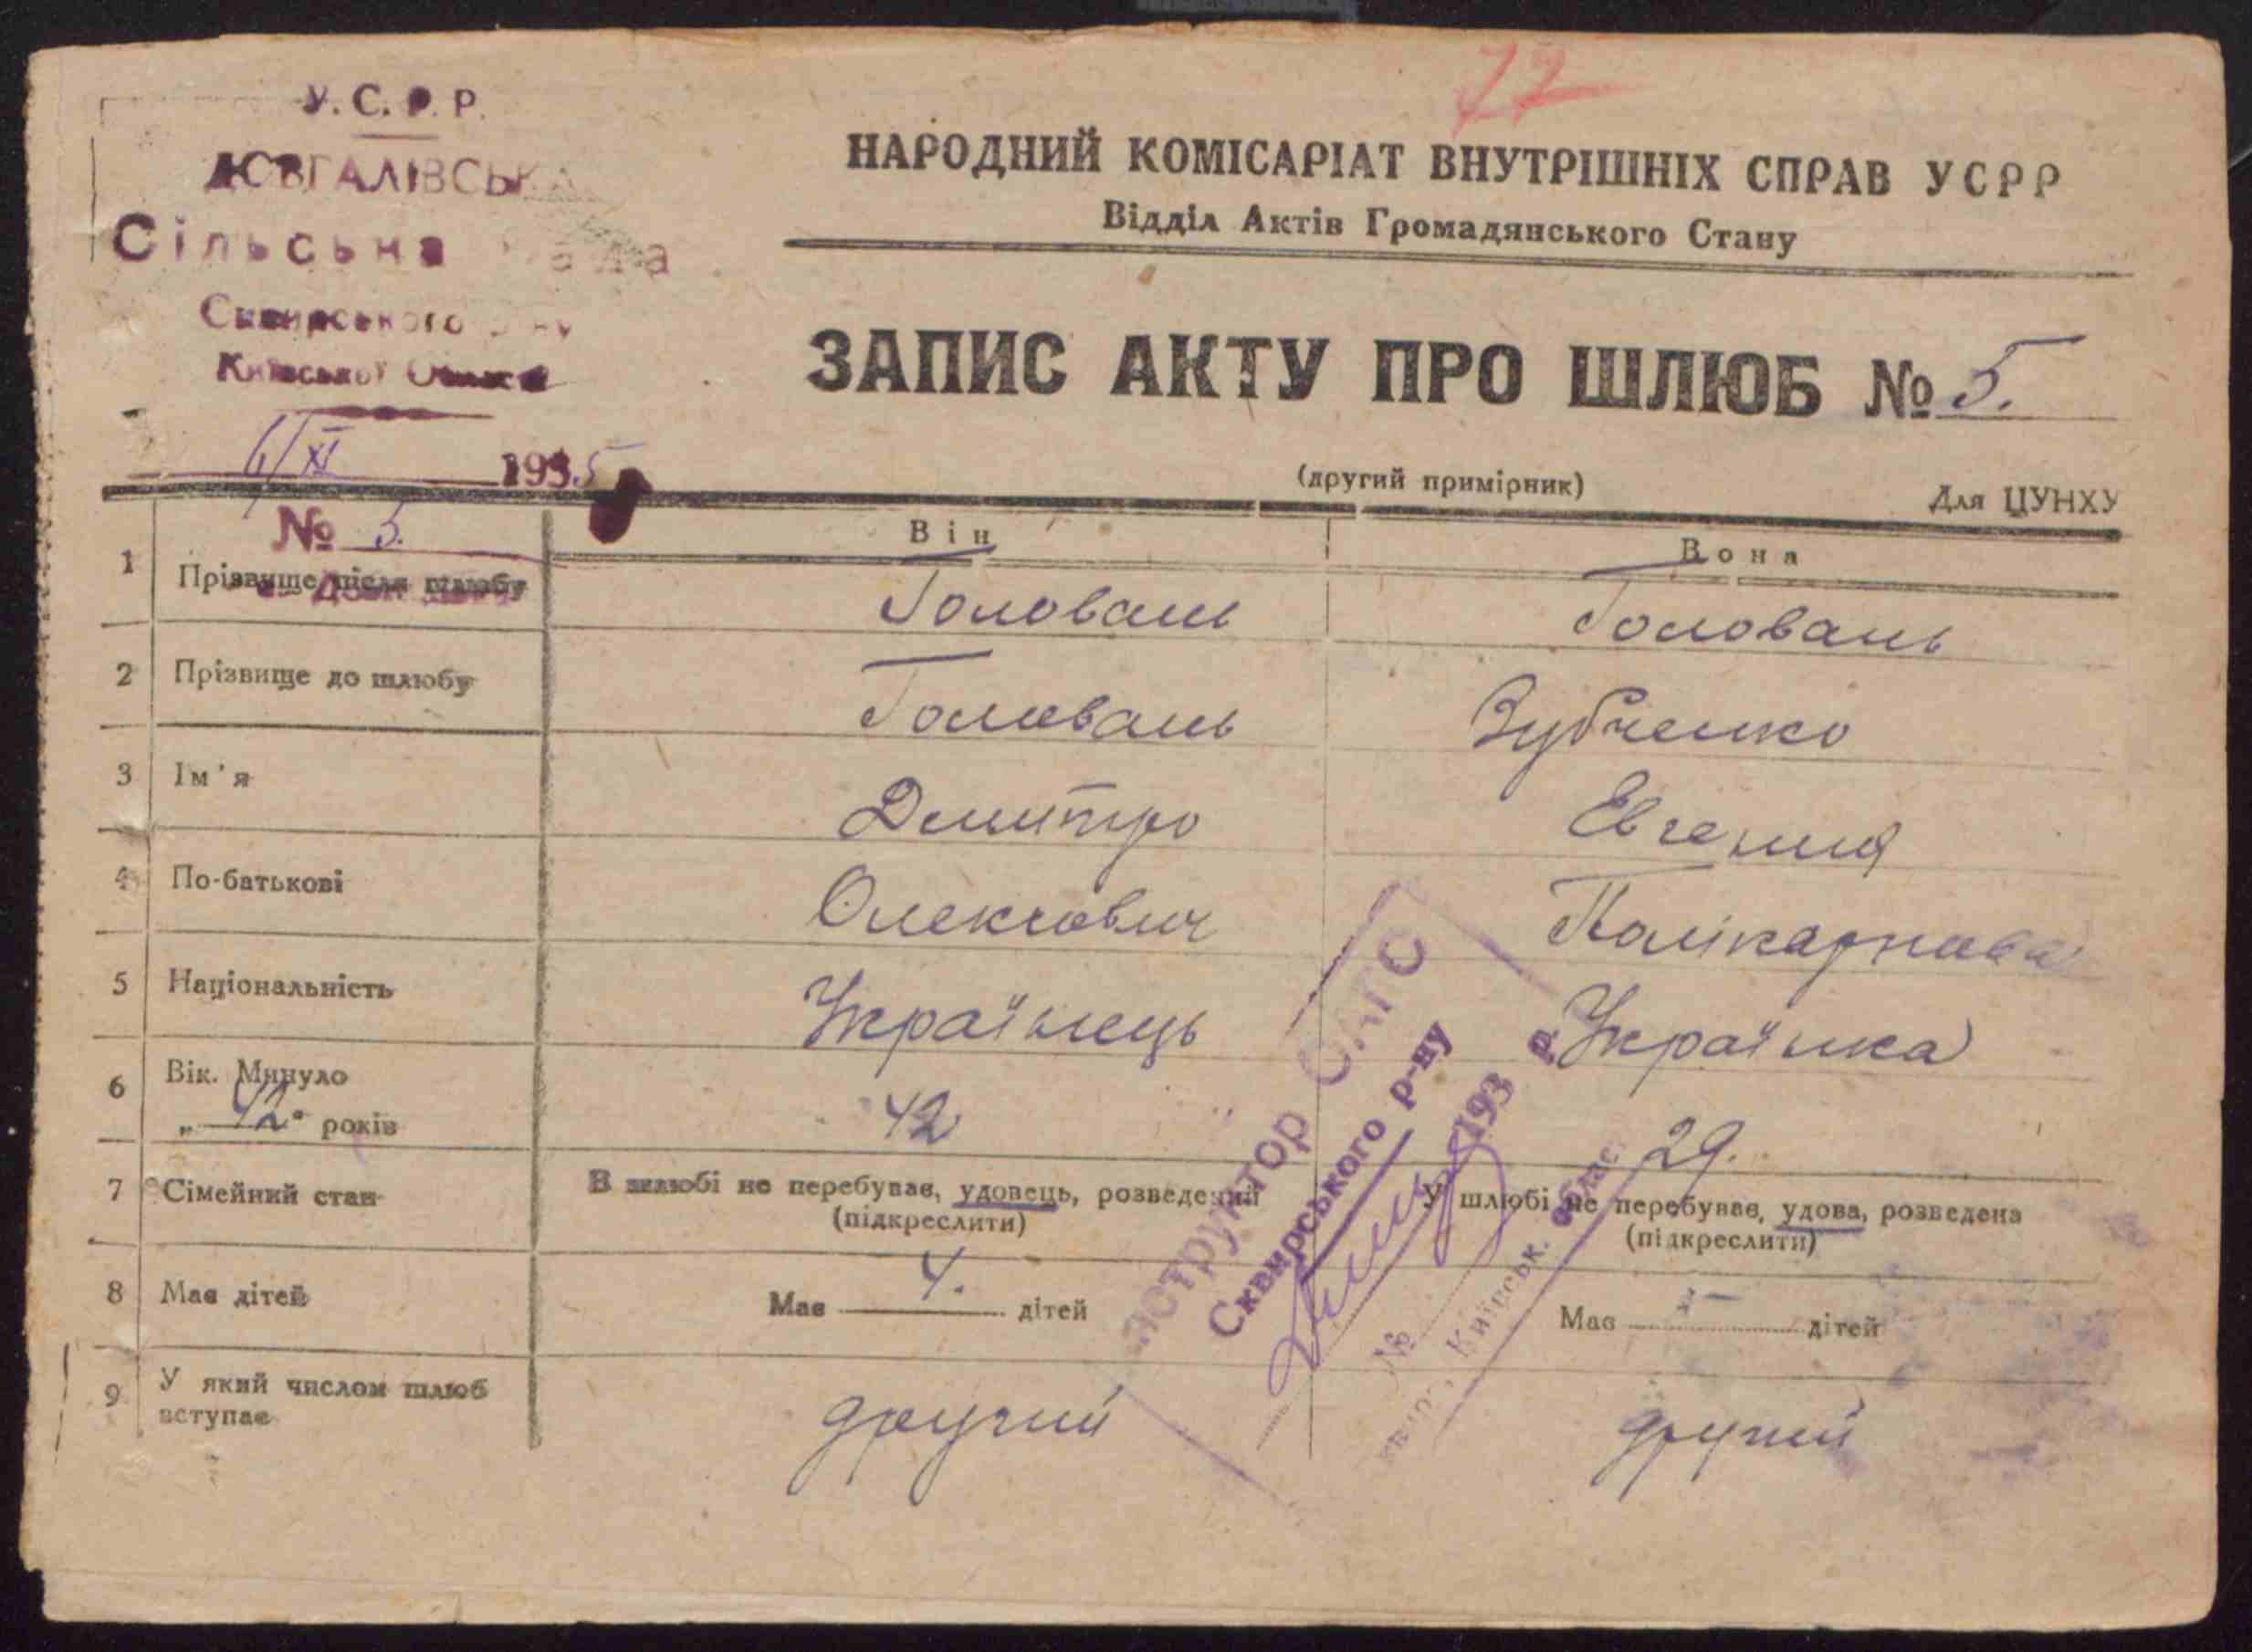 77
У.С.Р.Р.
ДОВГАЛІВСЬКА
Сільська Рада
Сквирського р-ну
Київської Области
6/XI 1935
№ 5.
НАРОДНИЙ КОМІСАРІАТ ВНУТРІШНІХ СПРАВ УСРР
Відділ Актів Громадянського Стану
ЗАПИС АКТУ ПРО ШЛЮБ № 5.
(другий примірник)
Для ЦУНХУ
Він Вона
1 Прізвище після шлюбу Головань Головань
2 Прізвище до шлюбу Головань Зубченко
3 Ім'я Дмитро Евгения
4 По-батькові Олексович Полікарповна
5 Національність Українець Українка
6 Вік. Минуло
„42" років 42 29.
7 Сімейний стан В шлюбі не перебував, удовець, розведений У шлюбі не перебував, удова, розведена
(підкреслити) (підкреслити)
8 Має дітей Має 4. дітей Має — дітей
9 У який числом шлюб
вступає другий другий
Інструктор ЗАГС
Сквирського р-ну
193 р.
№
Київськ. облас.